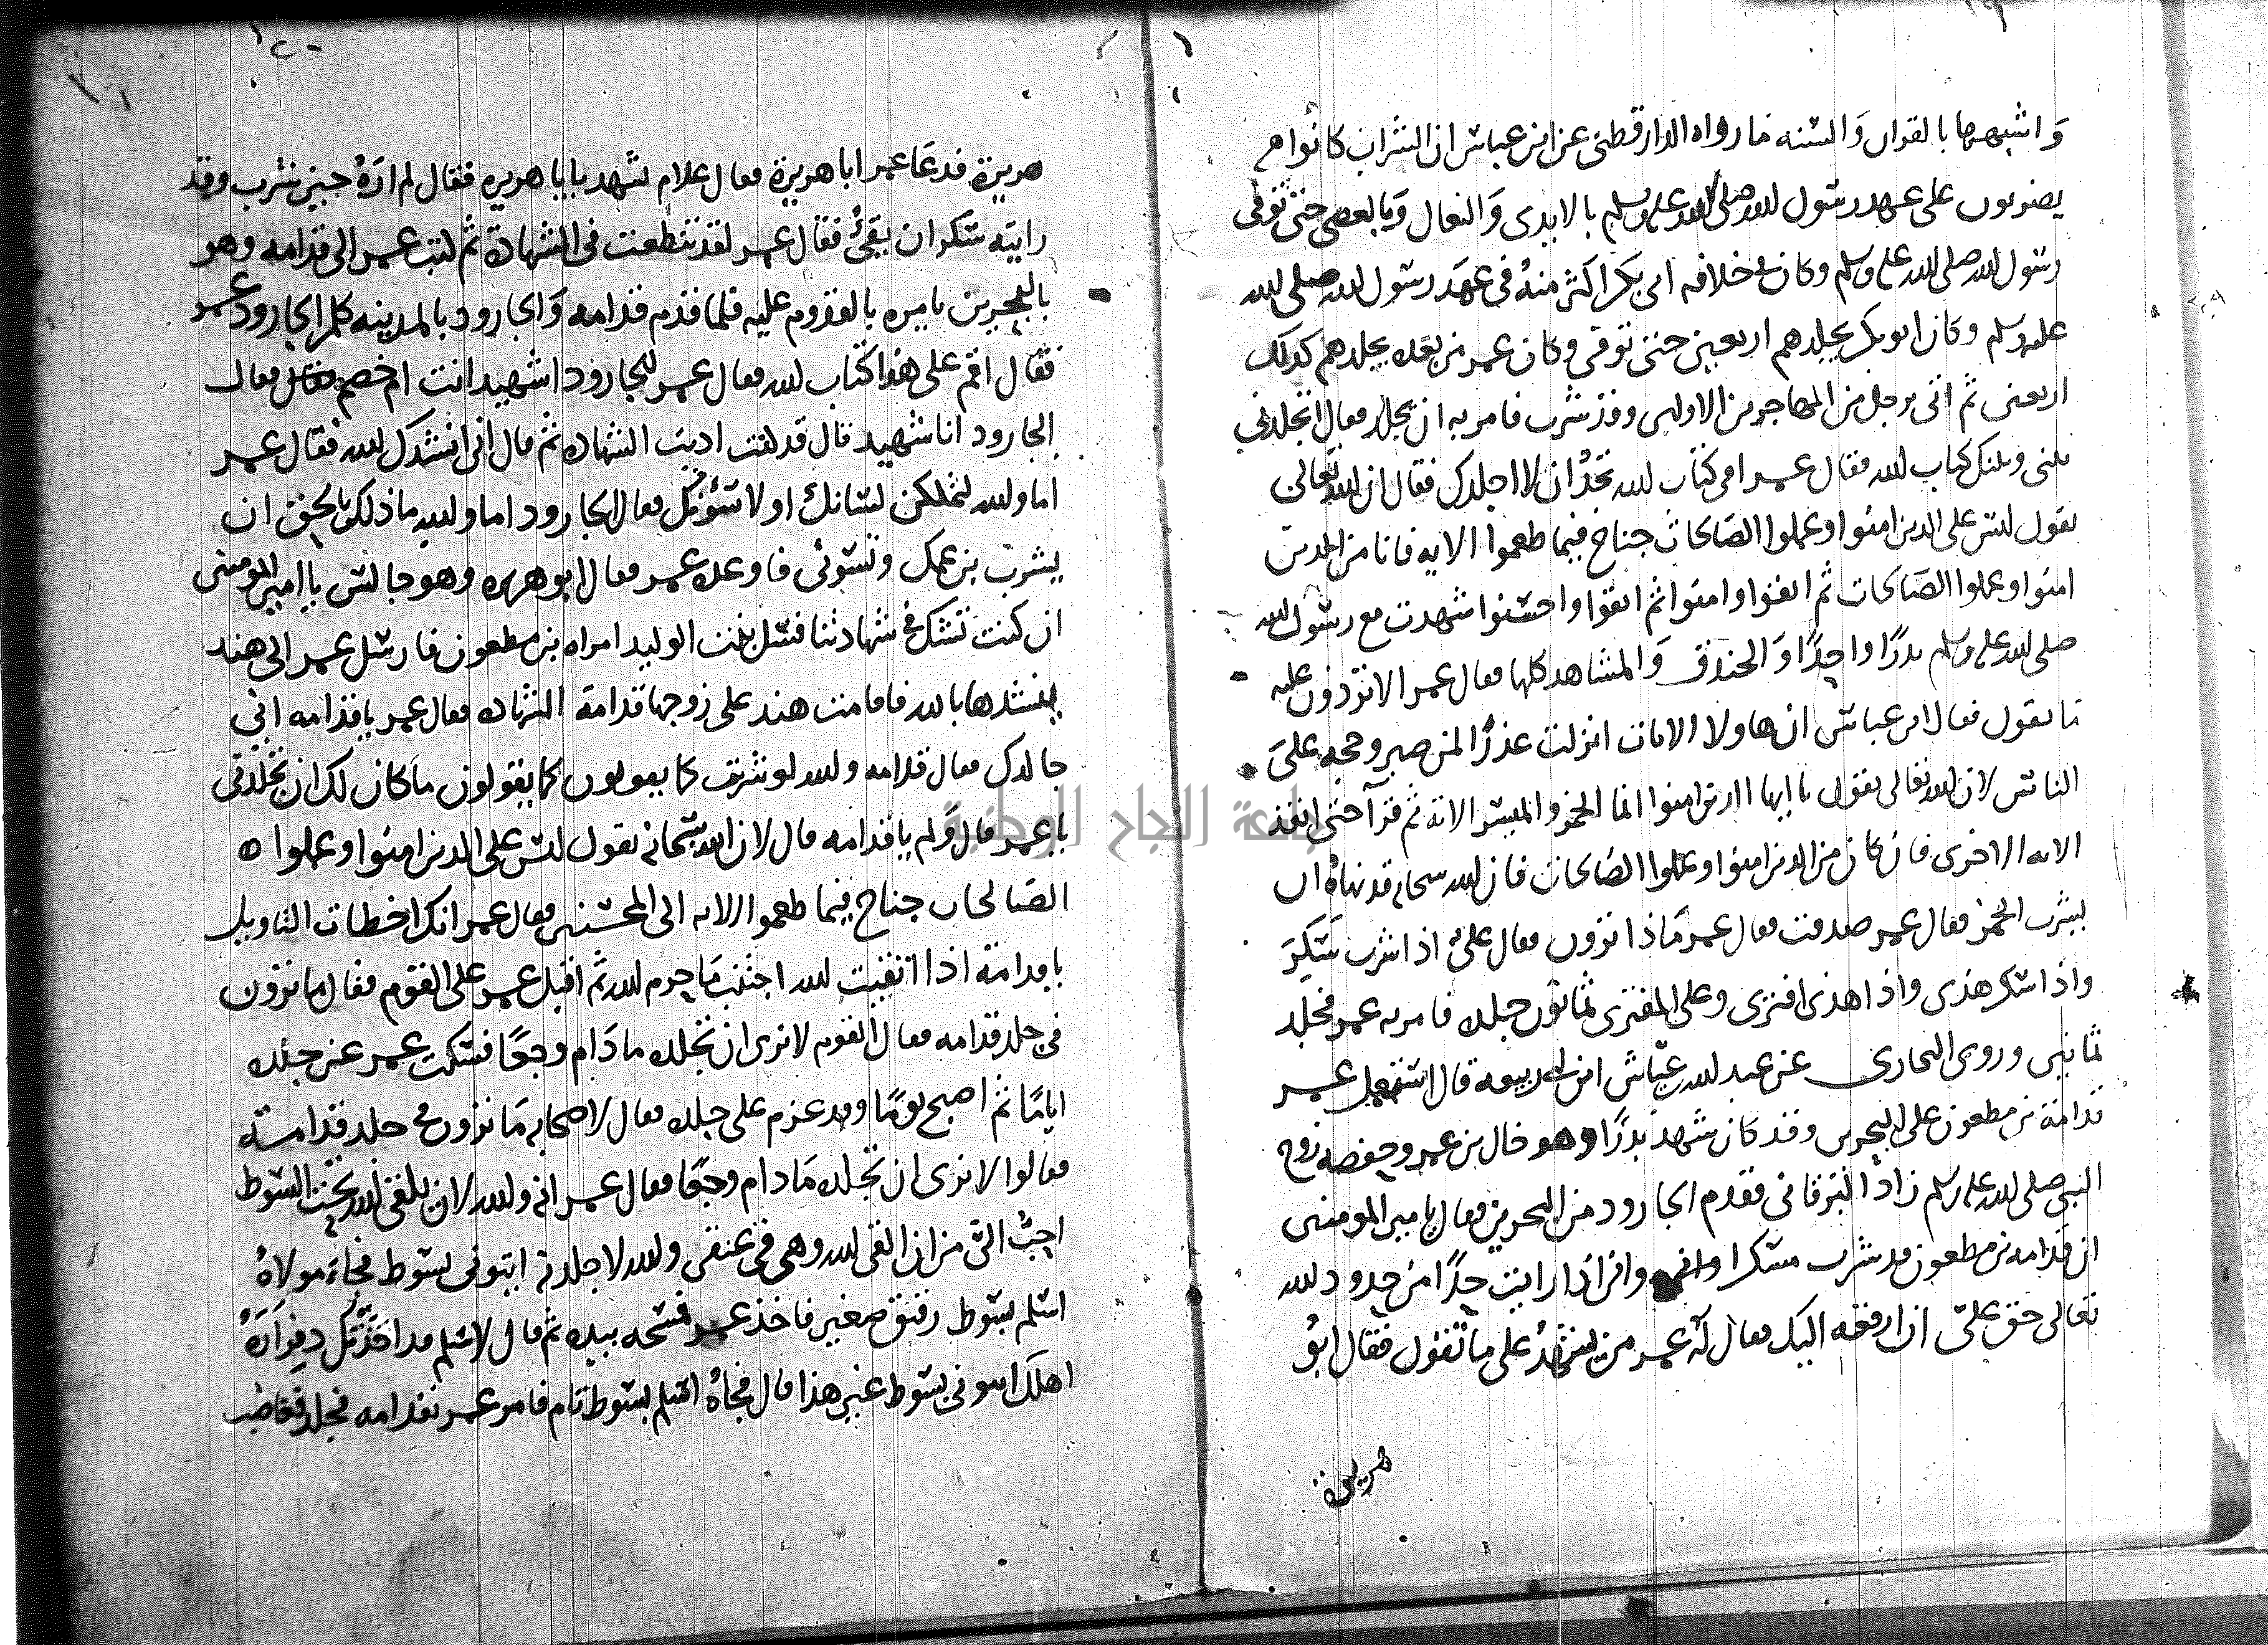 واشبهها بالقران والسنه ما رواه الدارقطني عن ابن عباس ان الشراب كانوا
يضربون على عهد رسول الله صلى الله عليه وسلم بالايدي والنعال وبالعصى حتى توفى
رسول الله صلى الله عليه وسلم وكان في خلافه ابي بكر اكثر منه في عهد رسول الله صلى الله
عليه وسلم وكان ابو بكر يجلدهم اربعين حتى توفى وكان عمر من بعده يجلدهم كذلك
اربعين ثم اتى برجل من المهاجرين الاولين وقد شرب فامر به ان يجلد فقال اتجلدني
بيني وبينك كتاب الله فقال عمر افي كتاب الله تجد ان لا اجلدك فقال ان الله تعالى
يقول ليس على الذين امنوا وعملوا الصالحات جناح فيما طعموا الايه فانا من الذين
امنوا وعملوا الصالحات ثم اتقوا وامنوا ثم اتقوا واحسنوا شهدت مع رسول الله
صلى الله عليه وسلم بدرا واحدا والخندق والمشاهد كلها فقال عمر الا تردون عليه
ما يقول فقال ابن عباس ان هاولا الايات انزلت عذرا لمن صبر وحجه على
الناس لان الله تعالى يقول يا ايها الذين امنوا انما الخمر والميسر الايه ثم قرا حتى انفذ
الايه الاخرى فان كان من الذين امنوا وعملوا الصالحات فان الله سبحانه قد نهاه ان
يشرب الخمر فقال عمر صدقت فقال عمر ماذا ترون فقال علي اذا شرب سكر
واذا سكر هذى واذا هذى افترى وعلى المفترى ثمانون جلده فامر به عمر فجلد
ثمانين وروى البخاري عن عبد الله عياش ابن ابي ربيعه قال استعمل عمر
قدامة بن مطعون على البحرين وقد كان شهد بدرا وهو خال بن عمر وحفصه زوج
النبي صلى الله عليه وسلم زاد البرقاني فقدم الجارود من البحرين فقال يا امير المومنين
ان قدامه بن مطعون قد شرب مسكرا واني اذا رايت حدا من حدود الله
تعالى حق علي ان ارفعه اليك فقال له عمر من يشهد على ما تقول فقال ابو
هريرة
هريرة فدعا عمر ابا هريرة فقال علام تشهد يا ابا هريره فقال لم اره حين شرب وقد
رايته سكران يقيء فقال عمر لقد تنطعت في الشهادة ثم كتب عمر الى قدامه وهو
بالبحرين يامره بالقدوم عليه فلما قدم قدامه والجارود بالمدينه كلم الجارود عمر
فقال اقم على هذا كتاب الله فقال عمر للجارود اشهيد انت ام خصم فقال
الجارود انا شهيد قال قد كنت اديت الشهاده ثم قال اني انشدك الله فقال عمر
اما والله لتملكن لسانك او لاسوئنك فقال الجارود اما والله ما ذلك بالحق ان
يشرب بن عمك وتسوئي فاوعده عمر فقال ابو هريره وهو جالس يا امير المومنين
ان كنت تشك في شهادتنا فسل بنت الوليد امراه بن مطعون فارسل عمر الى هند
ينشدها بالله فاقامت هند على زوجها قدامة الشهاده فقال عمر يا قدامه اني
جالدك فقال قدامه والله لو شربت كما يقولون ما كان لك ان تجلدني
يا عمر قال ولم يا قدامه قال لان الله سبحانه يقول ليس على الذين امنوا وعملوا
الصالحات جناح فيما طعموا الايه الى المحسنين فقال عمر انك اخطات التاويل
يا قدامة اذا اتقيت الله اجتنبت ما حرم الله ثم اقبل عمر على القوم فقال ما ترون
في جلد قدامه فقال القوم لا نرى ان تجلده ما دام وجعا فسكت عمر عن جلده
اياما ثم اصبح يوما وقد عزم على جلده فقال لاصحابه ما ترون في جلد قدامة
فقالوا لا نرى ان تجلده ما دام وجعا فقال عمر انه والله لان يلقى الله تحت السوط
احب الي من ان القى الله وهي في عنقي والله لاجلدنه ايتوني بسوط فجاه مولاه
اسلم بسوط رقيق صغير فاخذه عمر فمسحه بيده ثم قال لاسلم قد اخذتك دقراره
اهلك ايتوني بسوط غير هذا قال فجاه اسلم بسوط تام فامر عمر بقدامه فجلد فغاضب
جامعة النجاح الوطنية